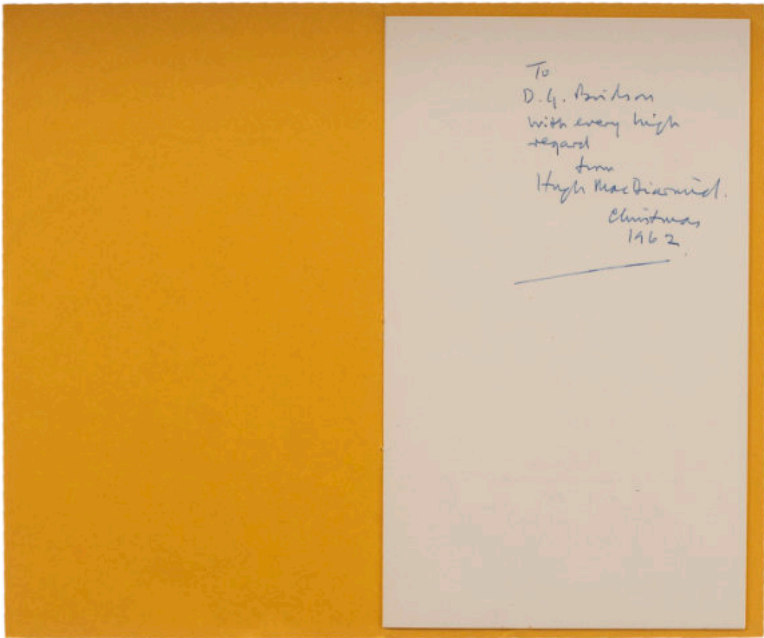 To
D. G. Bridson
with every high
regard
from
Hugh MacDiarmid.
Christmas
1962